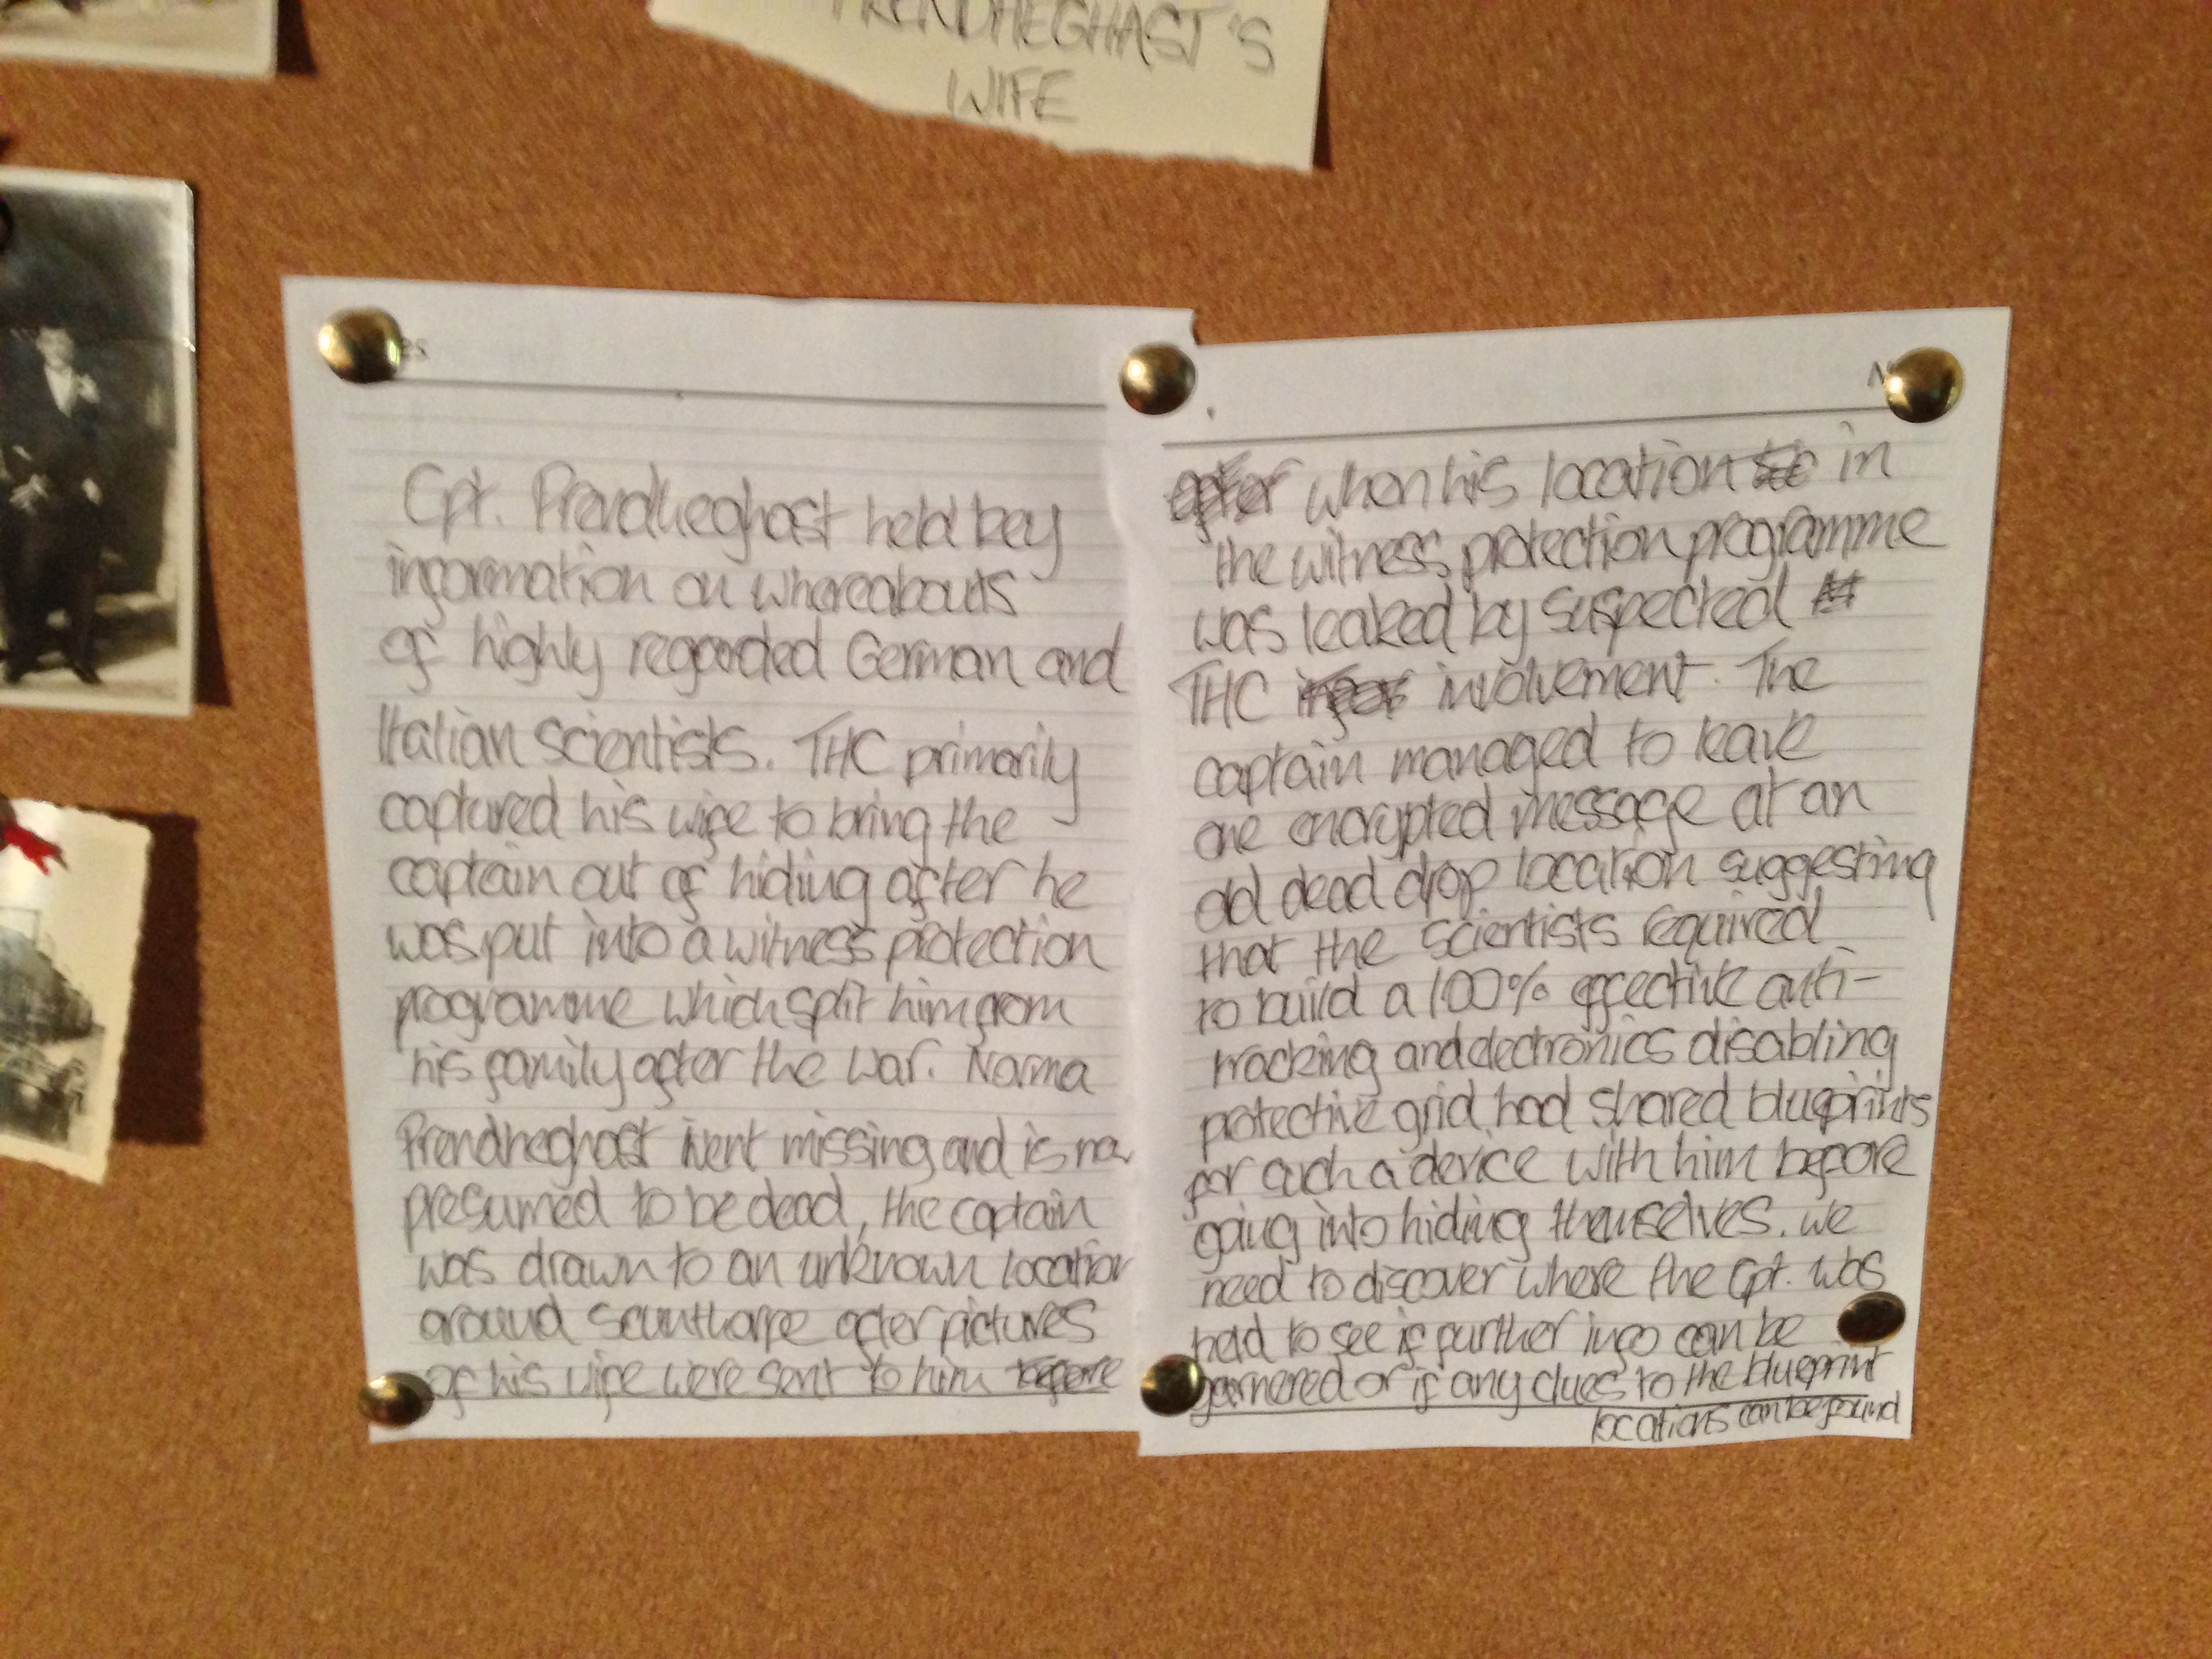 PRENDHEGHAST'S
WIFE
es
Cpt. Prendheghast held key
information on whereabouts
of highly regarded German and
Italian scientists. THC primarily
captured his wife to bring the
captain out of hiding after he
was put into a witness protection
programme which split him from
his family after the war. Norma
Prendheghast went missing and is now
presumed to be dead, the captain
was drawn to an unknown location
around Scunthorpe after pictures
of his wife were sent to him before
N
after when his location in
the witness protection programme
was leaked by suspected
THC involvement. The
captain managed to leave
one encrypted message at an
old dead drop location suggesting
that the scientists required
to build a 100% effective anti-
tracking and electronics disabling
protective grid had shared blueprints
for such a device with him before
going into hiding themselves. we
need to discover where the Cpt. was
held to see if further info can be
garnered or if any clues to the blueprint
locations can be found